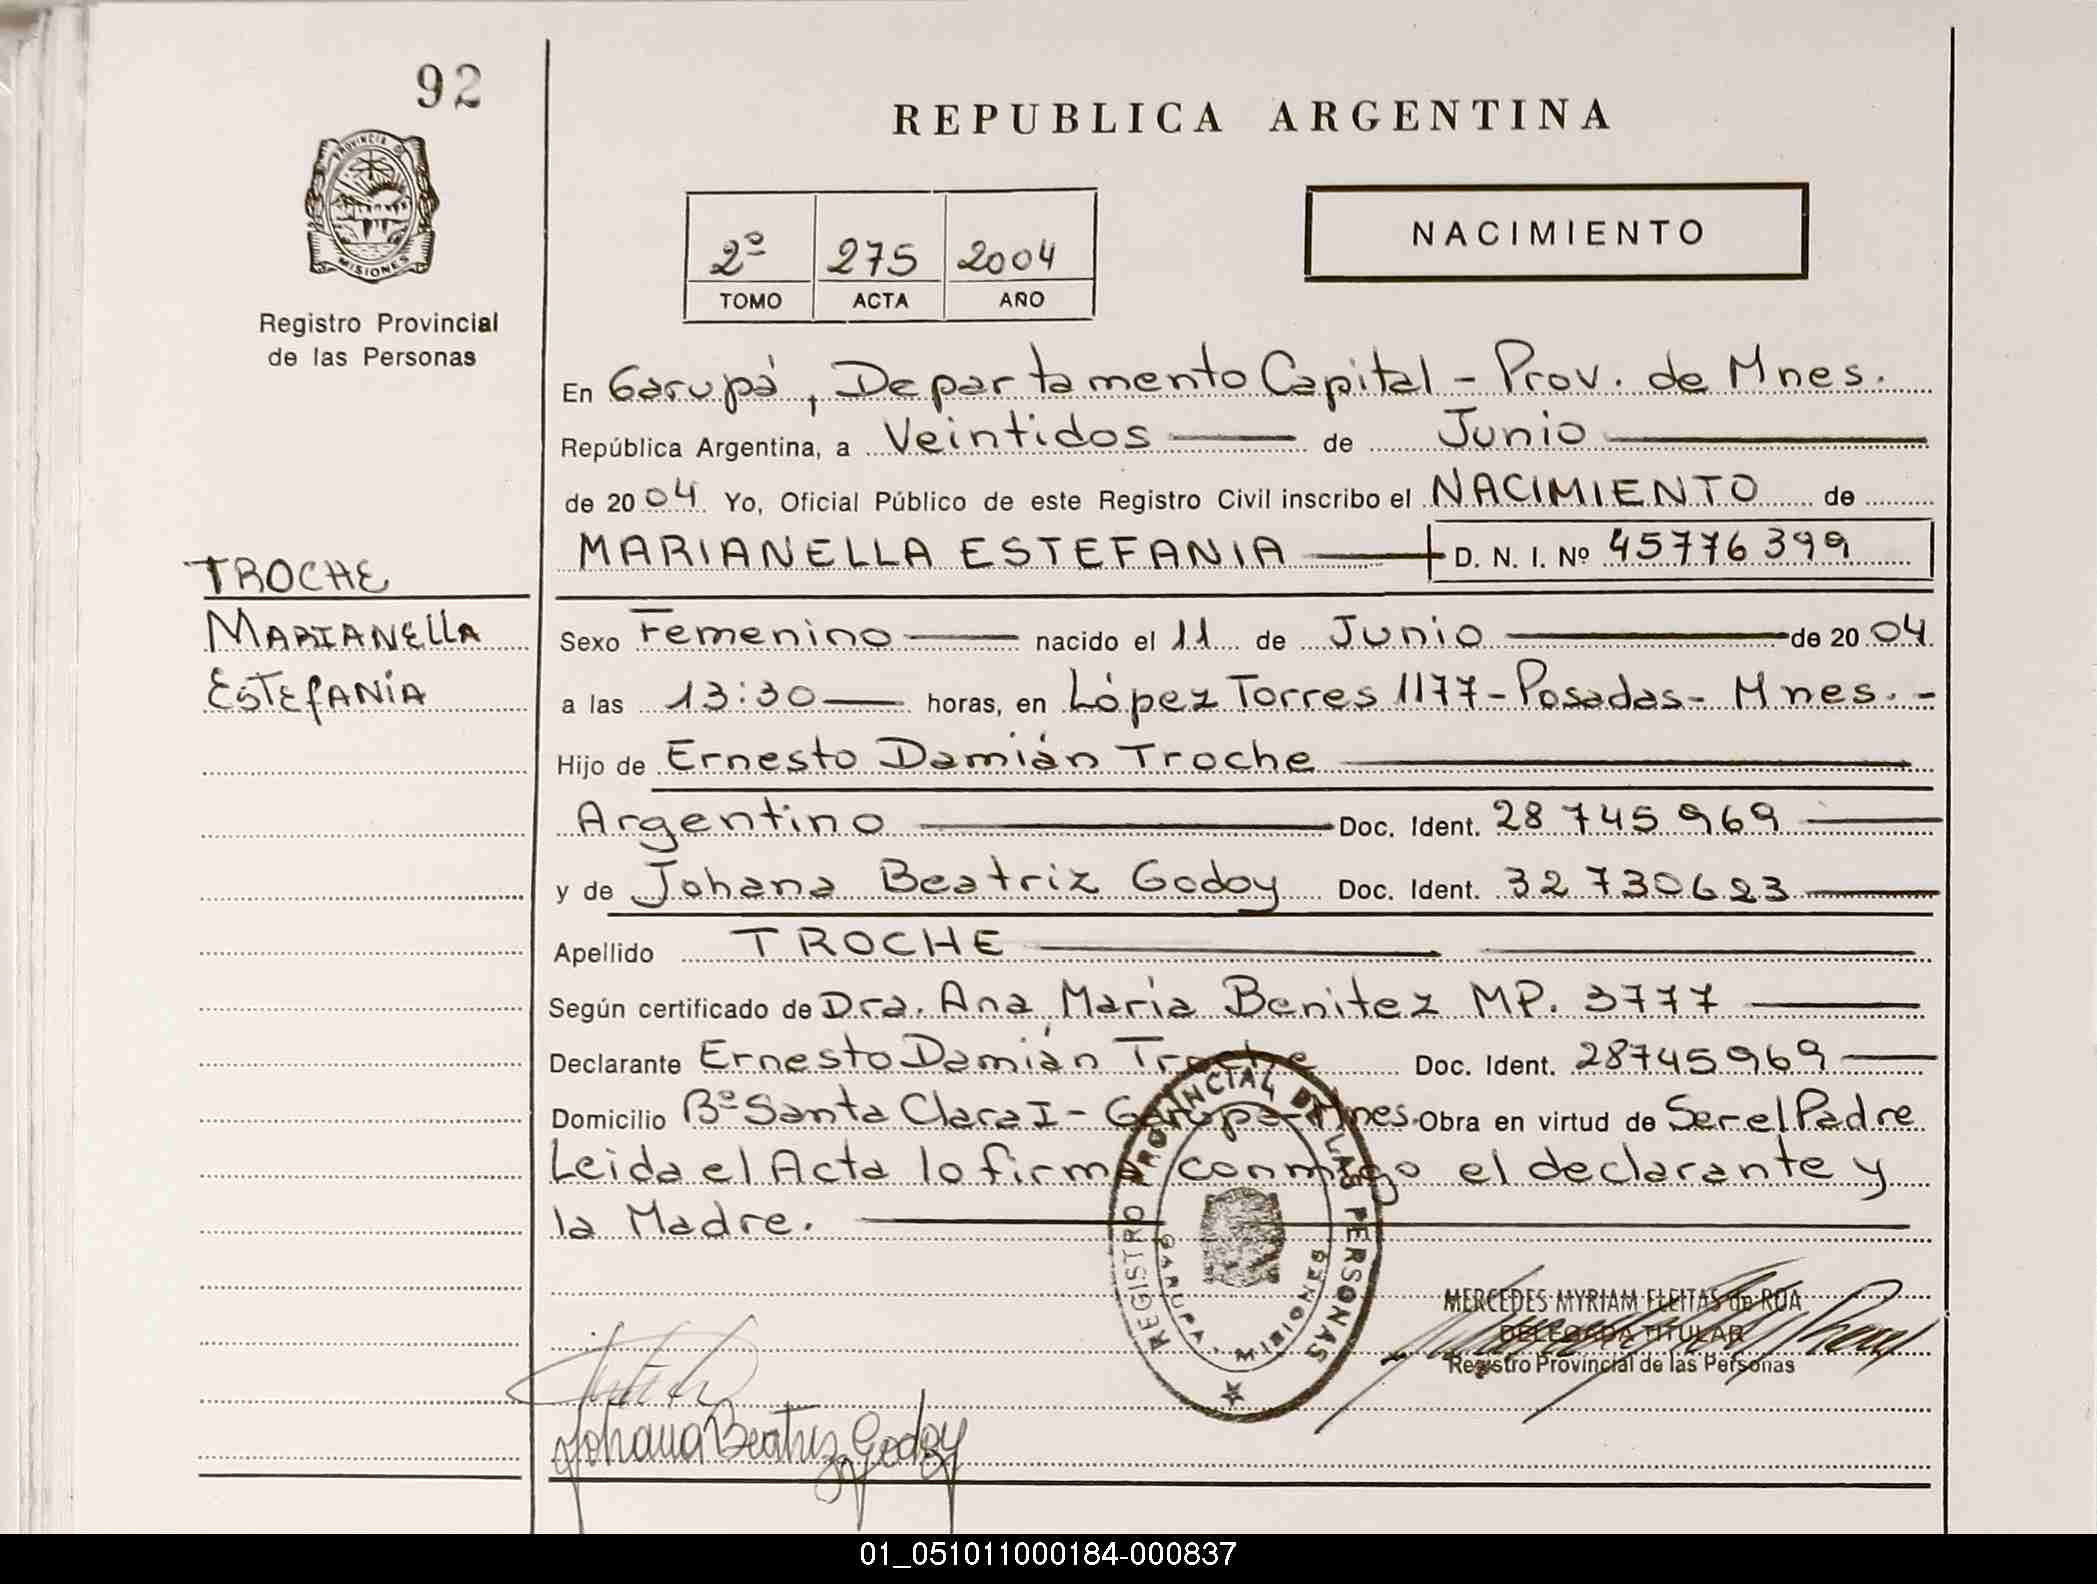 92
REPUBLICA ARGENTINA
PROVINCIA D
MISIONES
Registro Provincial
de las Personas
2º 275 2004
TOMO ACTA AÑO
NACIMIENTO
En Garupá, Departamento Capital - Prov. de Mnes.
República Argentina, a Veintidos de Junio
de 2004 Yo, Oficial Público de este Registro Civil inscribo el NACIMIENTO de
MARIANELLA ESTEFANIA D. N. I. Nº 45776399
TROCHE
MARIANELLA
ESTEFANÍA
Sexo Femenino nacido el 11 de Junio de 2004
a las 13:30 horas, en López Torres 1177-Posadas- Mnes. -
Hijo de Ernesto Damián Troche
Argentino Doc. Ident. 28 745 969
y de Johana Beatriz Godoy Doc. Ident. 32 730623
Apellido TROCHE
Según certificado de Dra. Ana María Benitez MP. 3777
Declarante Ernesto Damián Troche Doc. Ident. 28745969
Domicilio Bº Santa Clara I - Garupá-Mnes. Obra en virtud de Ser el Padre
Leida el Acta lo firma conmigo el declarante y
la Madre.
REGISTRO PROVINCIAL DE LAS PERSONAS
GARUPA - MISIONES
MERCEDES MYRIAM FLEITAS de ROA
DELEGADA TITULAR
Registro Provincial de las Personas
Johana Beatriz Godoy
01_051011000184-000837